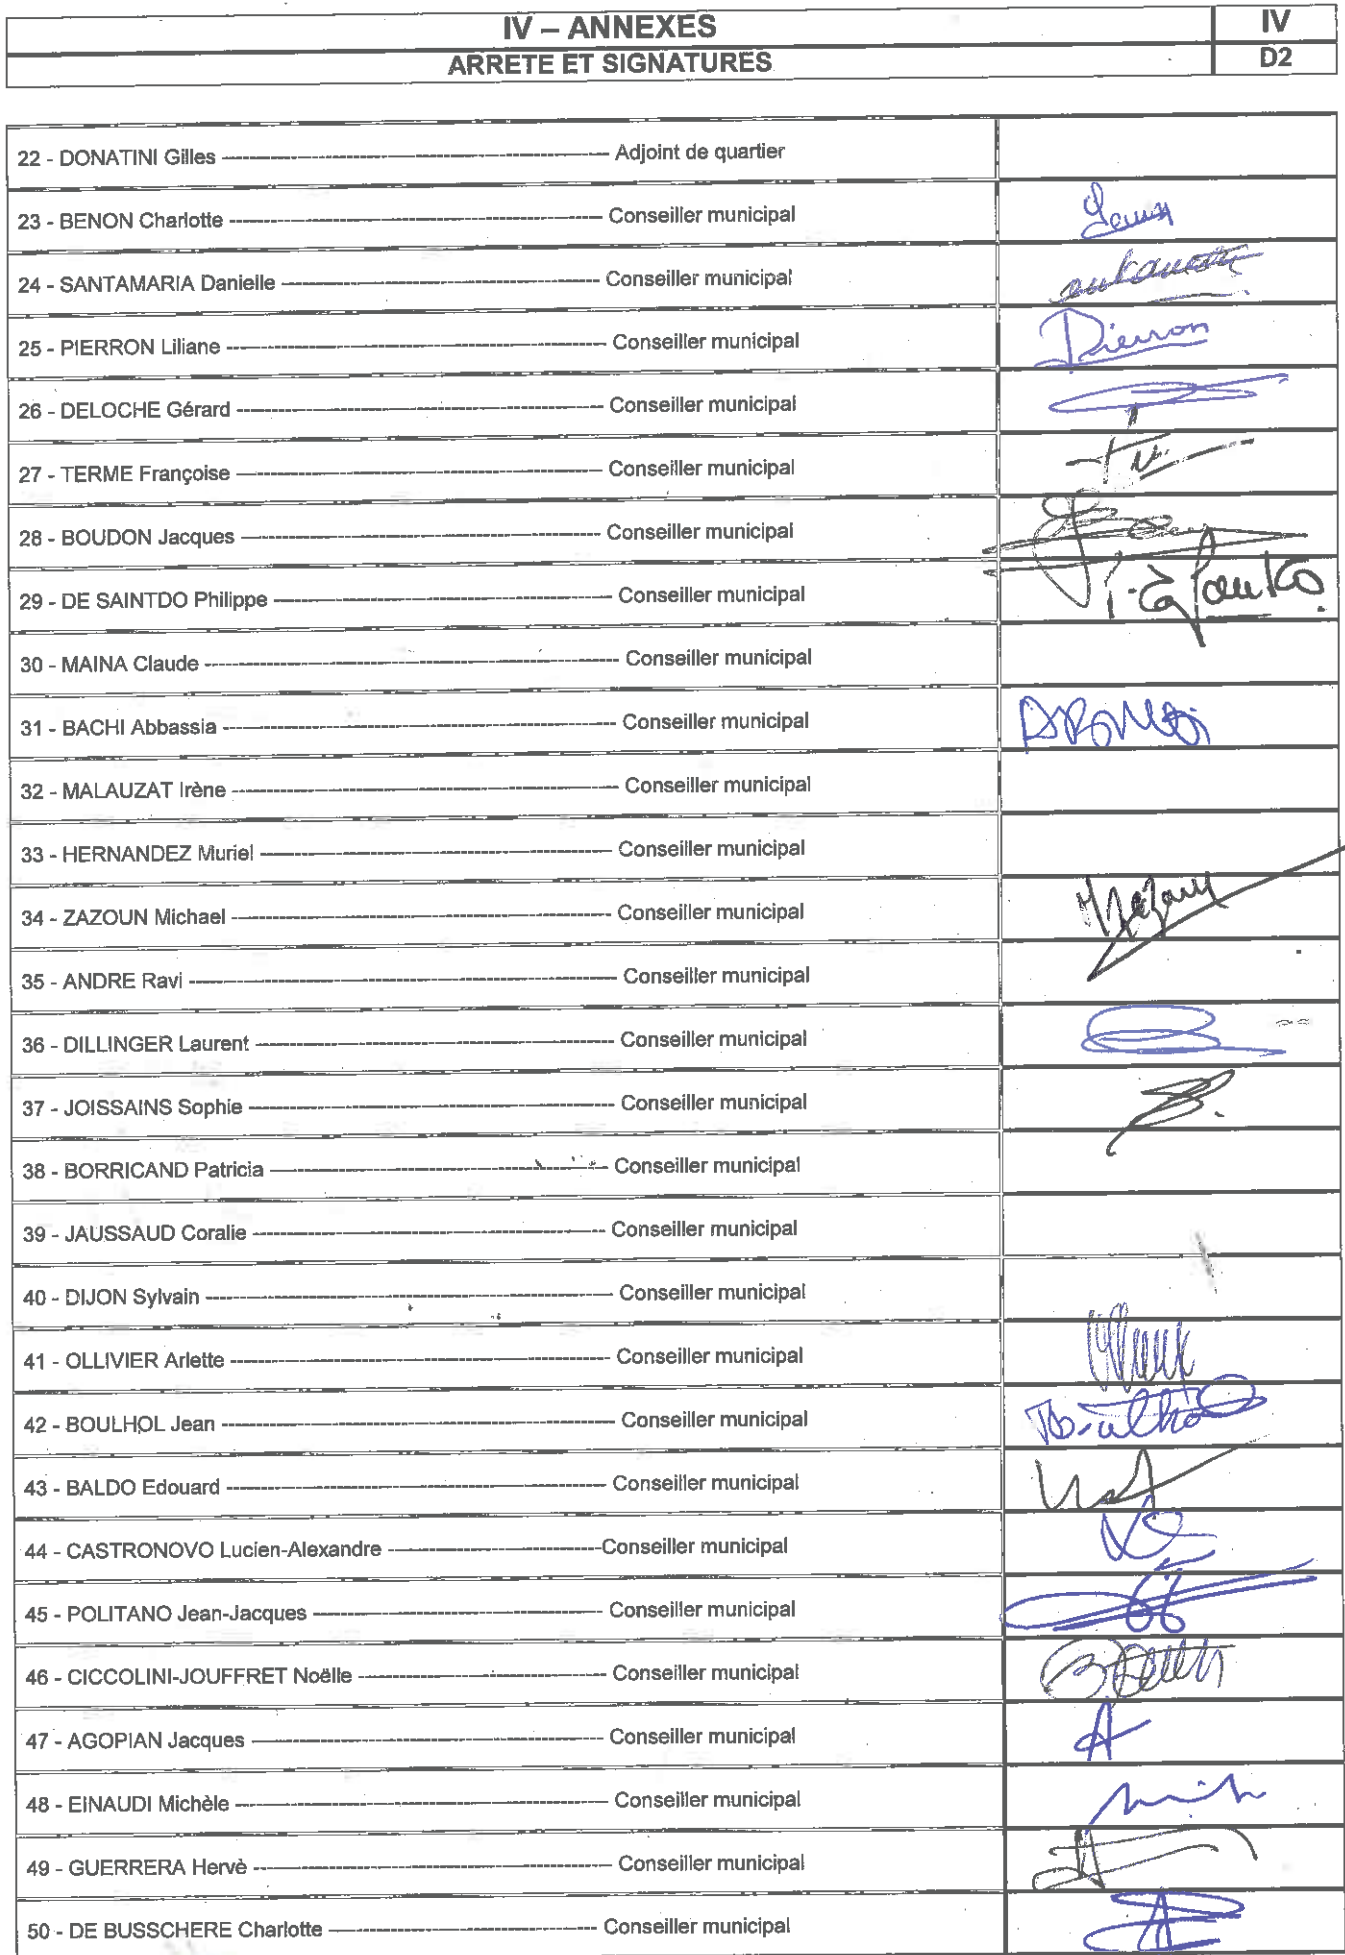 IV – ANNEXES IV
ARRETE ET SIGNATURES D2
22 - DONATINI Gilles Adjoint de quartier
23 - BENON Charlotte Conseiller municipal
24 - SANTAMARIA Danielle Conseiller municipal
25 - PIERRON Liliane Conseiller municipal Pierron
26 - DELOCHE Gérard Conseiller municipal
27 - TERME Françoise Conseiller municipal
28 - BOUDON Jacques Conseiller municipal
29 - DE SAINTDO Philippe Conseiller municipal
30 - MAINA Claude Conseiller municipal
31 - BACHI Abbassia Conseiller municipal
32 - MALAUZAT Irène Conseiller municipal
33 - HERNANDEZ Muriel Conseiller municipal
34 - ZAZOUN Michael Conseiller municipal
35 - ANDRE Ravi Conseiller municipal
36 - DILLINGER Laurent Conseiller municipal
37 - JOISSAINS Sophie Conseiller municipal
38 - BORRICAND Patricia Conseiller municipal
39 - JAUSSAUD Coralie Conseiller municipal
40 - DIJON Sylvain Conseiller municipal
41 - OLLIVIER Arlette Conseiller municipal
42 - BOULHOL Jean Conseiller municipal
43 - BALDO Edouard Conseiller municipal
44 - CASTRONOVO Lucien-Alexandre Conseiller municipal
45 - POLITANO Jean-Jacques Conseiller municipal
46 - CICCOLINI-JOUFFRET Noëlle Conseiller municipal
47 - AGOPIAN Jacques Conseiller municipal
48 - EINAUDI Michèle Conseiller municipal
49 - GUERRERA Hervè Conseiller municipal
50 - DE BUSSCHERE Charlotte Conseiller municipal